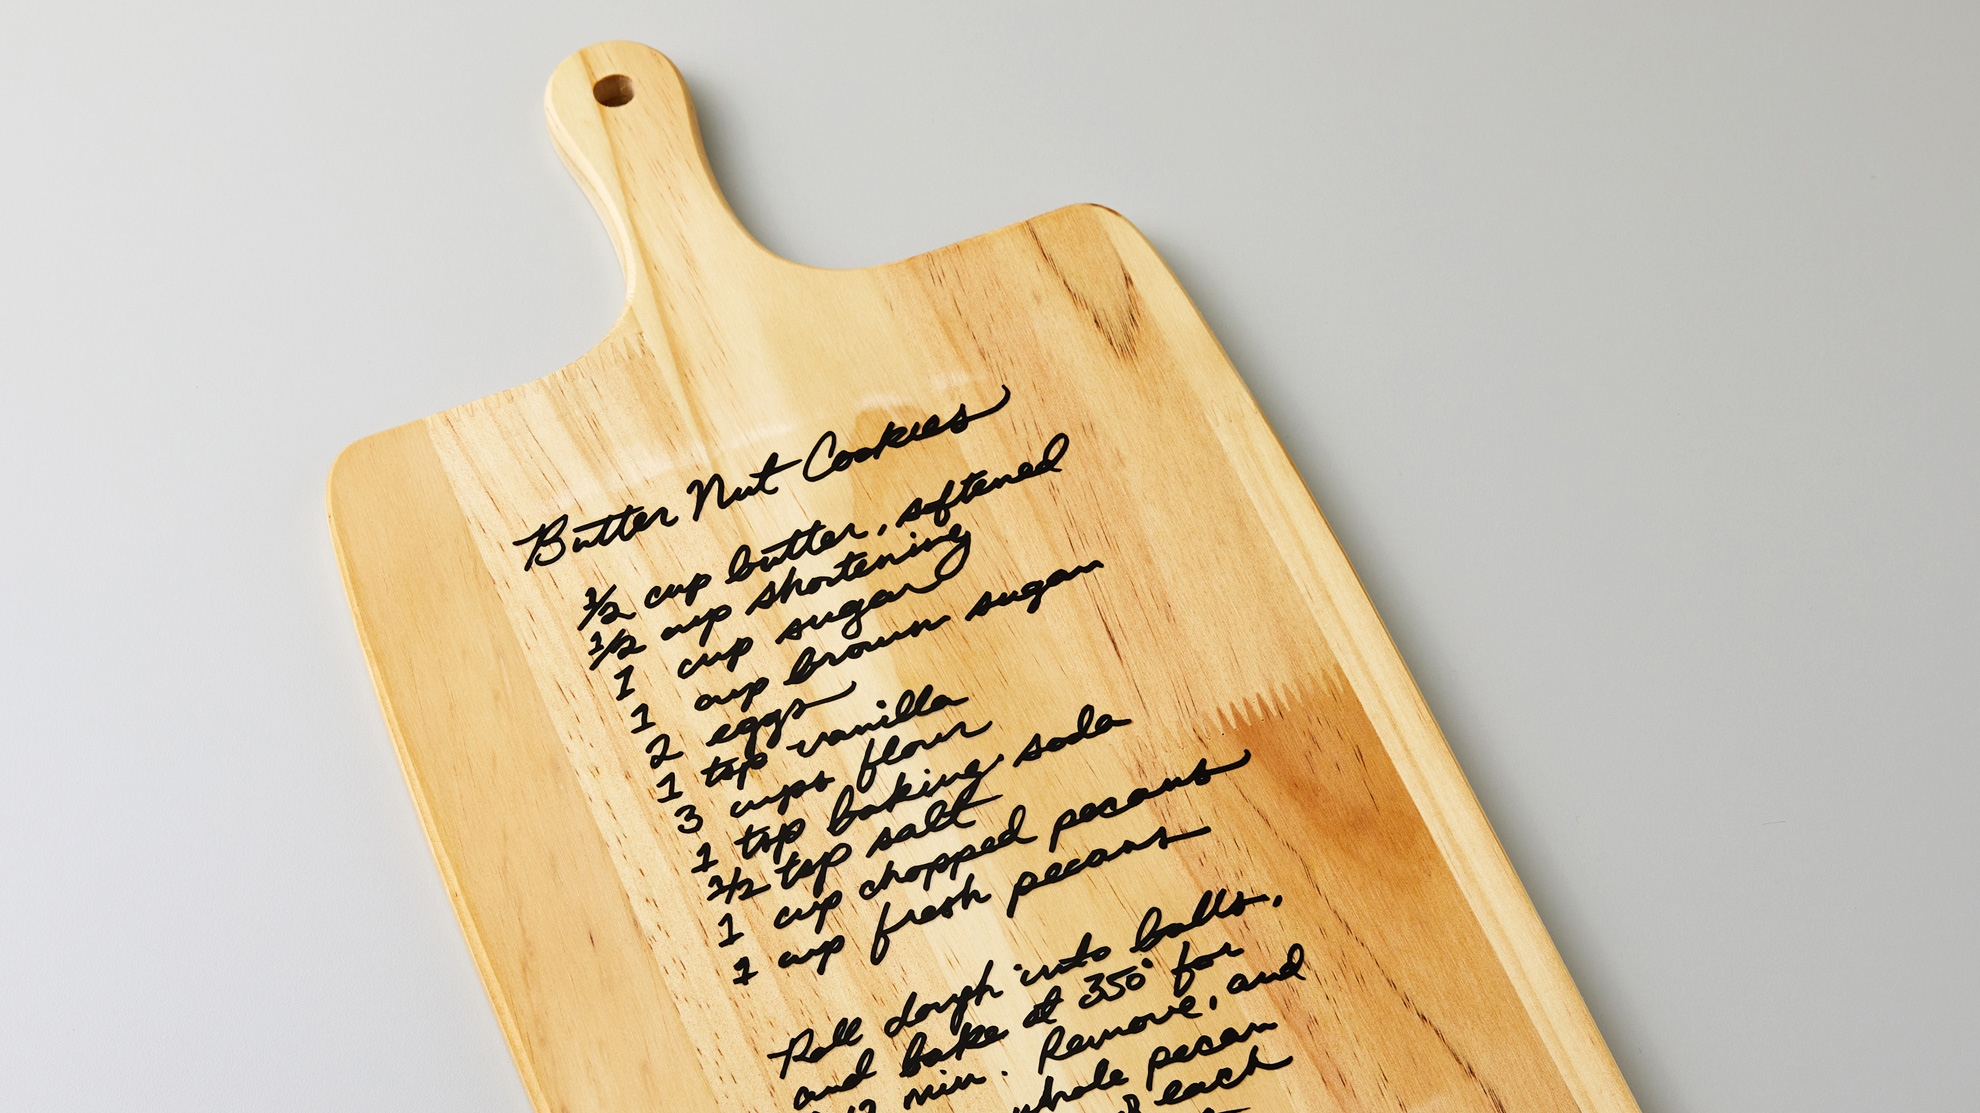 Butter Nut Cookies
1/2 cup butter, softened
1/2 cup shortening
1 cup sugar
1 cup brown sugar
2 eggs
1 tsp vanilla
3 cups flour
1 tsp baking soda
1/2 tsp salt
1 cup chopped pecans
1 cup fresh pecans
Roll dough into balls,
and bake at 350° for
min. Remove, and
whole pecan
each